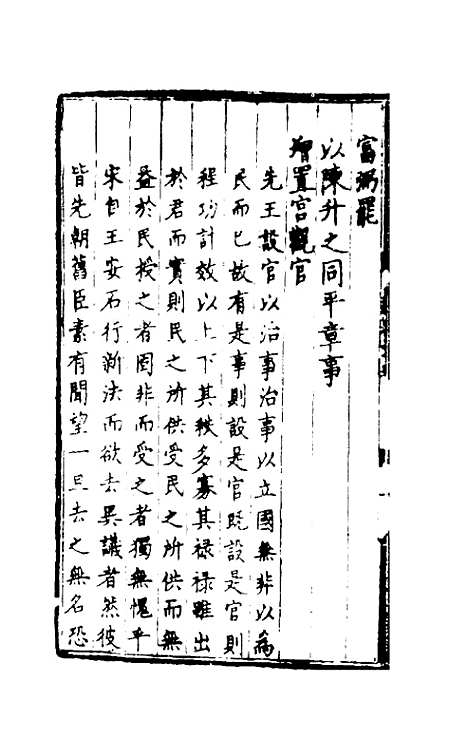 富弼罷
以陳升之同平章事
增置宮觀官
先王設官以治事治事以立國無非以為
民而已故有是事則設是官旣設是官則
程功計效以上下其秩多寡其祿祿雖出
於君而實則民之所供受民之所供而無
益於民授之者固非而受之者獨無愧乎
宋自王安石行新法而欲去異議者然彼
皆先朝舊臣素有聞望一旦去之無名恐